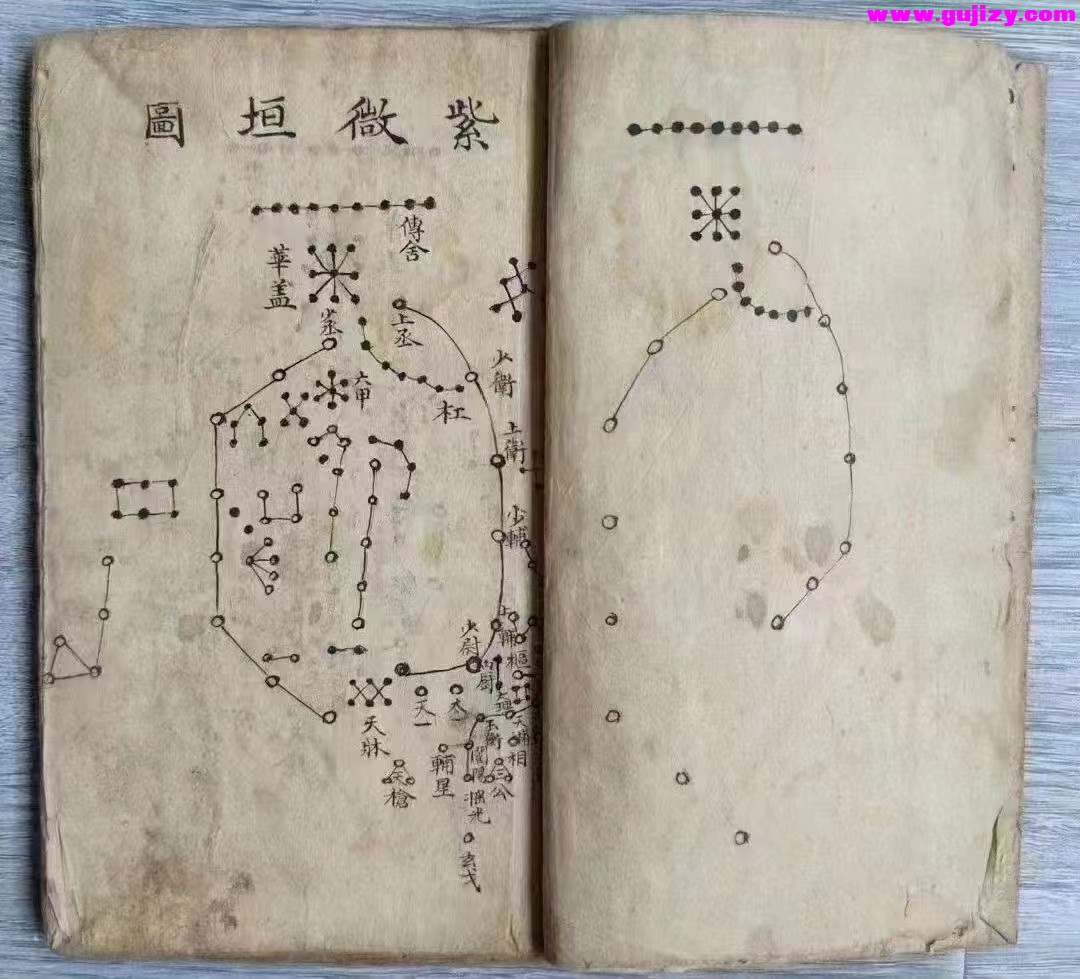 www.gujizy.com
紫微垣圖
傳舍
華盖
上丞
少丞
少衛
六甲
杠
上衛
少輔
上輔
少尉
樞
天一
太一
天牀
相
輔星
開陽
三公
天槍
搖光
玄戈